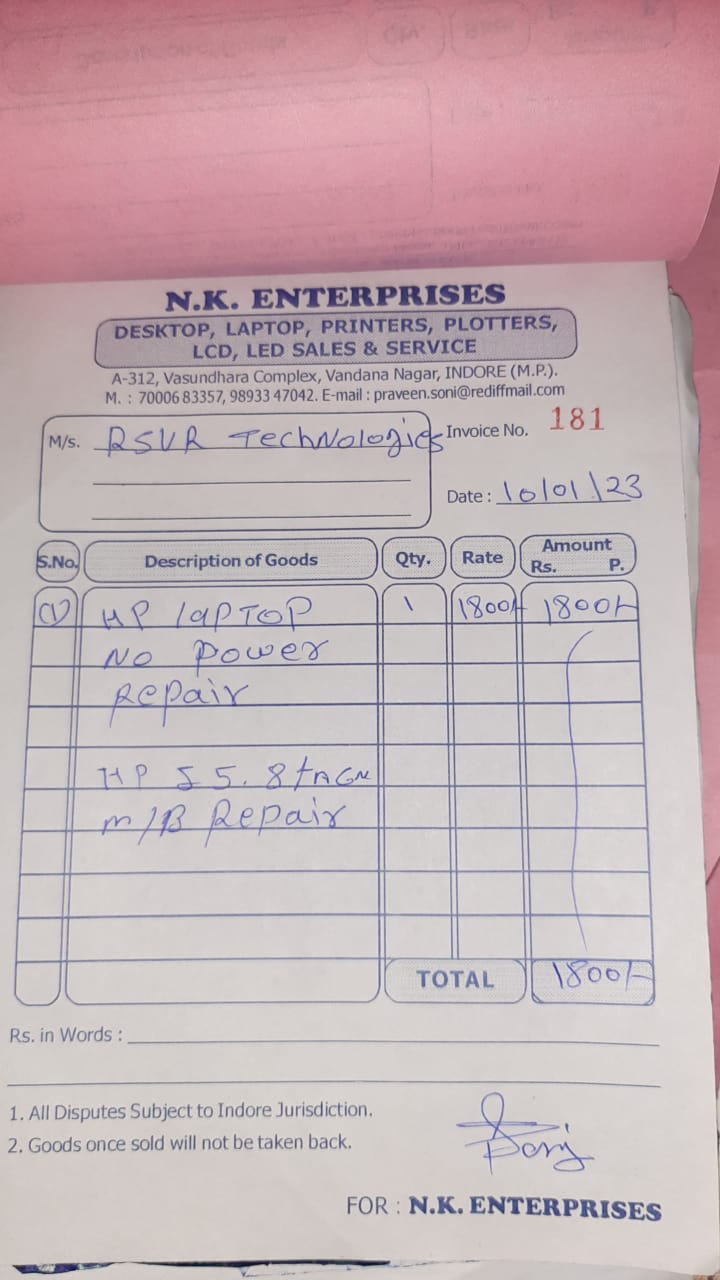 N.K. ENTERPRISES
DESKTOP, LAPTOP, PRINTERS, PLOTTERS,
LCD, LED SALES & SERVICE
A-312, Vasundhara Complex, Vandana Nagar, INDORE (M.P.).
M. : 70006 83357, 98933 47042. E-mail : praveen.soni@rediffmail.com
M/s. RSVR Technologies
Invoice No. 181
Date : 10/01/23
S.No. Description of Goods Qty. Rate Amount
Rs. P.
(1) HP Laptop 1 1800/- 1800/-
No Power
Repair
HP I5. 8th
M/B Repair
TOTAL 1800/-
Rs. in Words :
1. All Disputes Subject to Indore Jurisdiction.
2. Goods once sold will not be taken back.
FOR : N.K. ENTERPRISES